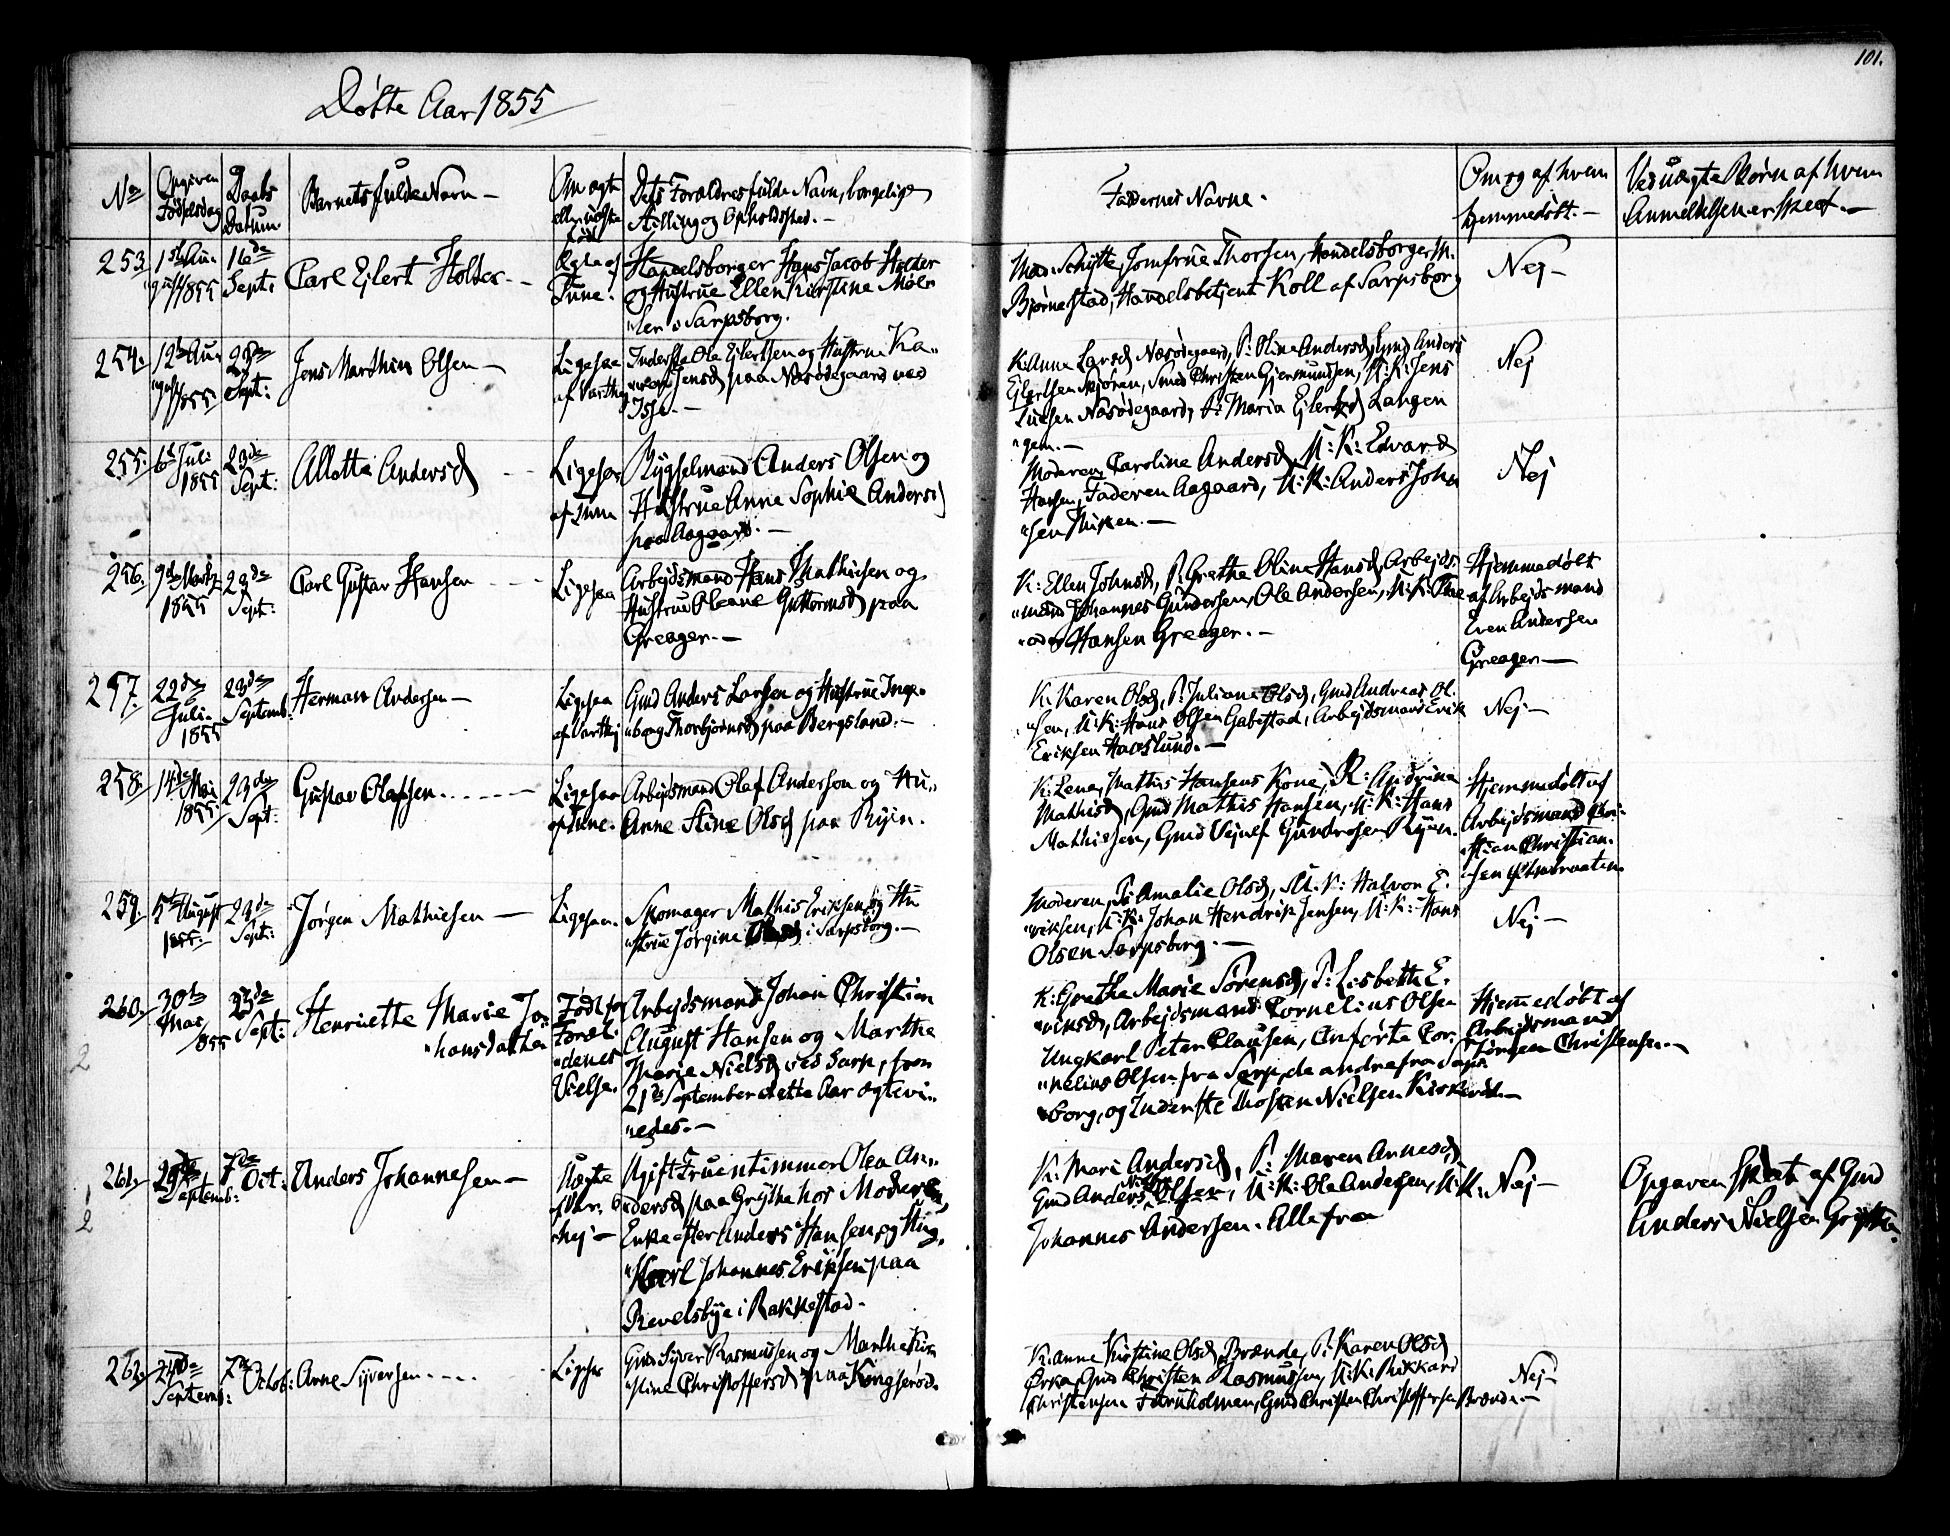 101.
Døbte Aar 1855
No
Opgiven
Fødselsdag
Daabs
Datum
Barnets fulde Navn —
Om ægte
eller uægte
født
Dets Forældres fulde Navn, borgelige
Stilling og Opholdssted. —
Faddernes Navne.
Om og af hvem
hjemmedøbt. —
Ved uægte Børn af hvem
Anmeldelsen er skeet. —
253
1ste Au-
gust 1855
16de
Sept:
Carl Ejlert Holter - -
Ægte af
Tune.
Handelsborger Hans Jacob Holter
og Hustrue Ellen Kirstine Møl-
"ler i Sarpsborg.
Mad. Schytte, Jomfrue Thorsen, Handelsborger M.
Bjørnestad, Handelsbetjent Koll af Sarpsborg
Nej —
254.
12te Au-
"gust 1855
23de
Sept:
Jens Marthin Olsen —
Ligesaa
af Varthj
Inderste Ole Ejlertsen og Hustrue Ka-
"ren Jensd paa Næsødegaard ved
Ise. —
K: Anne Larsd Næsødegaard, P: Oline Andersd, Gmd Anders
Ejlertsen Skjøren, Smed Christen Gjermundsen, U: K: Jens
Næsødegaard, P: Maria Ejlertsd Langen
"gen. —
Nej
255.
6te Juli
1855
23de
Sept:
Allotta Andersd - -
Ligesaa
af Tune
Rygselmand Anders Olsen og
Hustrue Anne Sophie Andersd
paa Aagaard. —
Moderen, Caroline Andersd, U: K: Edvard
Hansen, Faderen Aagaard, U: K: Anders Johan
"sen —
Nej
256.
9de Marts
1855
23de
Sept:
Carl Gustav Hansen - - -
Ligesaa
Arbejdsmand Hans Mathiesen og
Hustrue Oleane Guttormsd paa
Greager. —
K: Ellen Johnsd, P: Grethe Oline Hansd, Arbejds-
"mænd Johannes Gundersen, Ole Andersen, U: K: The
"odor Hansen Greager. —
Hjemmedøbt
af Arbejdsmand
Even Andersen
Greager —
257.
22de
Juli
1855
23de
Septemb:
Herman Andersen —
Ligesaa
af Varthj
Gmd Anders Larsen og Hustrue Inge-
"borg Thorbjørnsd paa Bergsland. —
K: Karen Olsd, P: Juliane Olsd, Gmd Andreas Ol-
"sen, U: K: Hans Olsen Gabestad, Arbejdsmand Erik
Eriksen Hafslund. —
Nej —
258
14de Mai
1855
23de
Sept:
Gustav Olafsen. - - - - —
Ligesaa
af Tune.
Arbejdsmand Olaf Anderson og Hu-
Anne Stine Olsd paa Ryen.
K: Lena, Mathis Hansens Kone, P: Andrine
Mathisd, Gmd Mathis Hansen, U: K: Hans
Mathiesen, Gmd Gundersen Ryen.
Hjemmedøbt af
Arbejdsmand Chri-
"stian Christian-
"sen
259.
5te August
1855.
23de
Sept:
Jørgen Mathiesen —
Ligesaa.
Skomager Mathis Eriksen og Hu
"strue Jørgine Olsd i Sarpsborg. —
Moderen, P: Amalie Olsd, U: K: Halvor E-
"riksen, U: K: Johan Hendrik Jensen, U: K: Hans
Olsen Sarpsborg. —
Nej —
260.
30te
Mai
1855
23de
Sept:
Henriette Marie Jo
"hansdatter
Født før
Foræl-
"drenes
Vielse.
Arbejdsmand Johan Christian
August Hansen og Marthe
Marie Nielsd ved Sarp, som
21de September dette Aar ægtevi-
"edes. —
K: Grethe Marie Sørensd, P: Lisbeth E-
"riksd, Arbejdsmænd Cornelius Olsen
Ungkarl Peter Clausen, Anførte Cor-
"nelius Olsen fra Sarp, de andre fra Sarps-
"borg, og Inderste Thosten Nielsen —
Hjemmedøbt af
Arbejdsmand
Jørgen Christensen. —
2
261.
29de
Septemb:
7de
Oct:
Anders Johannesen —
Uægte
Ugift Fruentimmer Olea An-
"dersd paa Grytha hos Moderen,
Enke efter Anders Hansen, og Ung-
"karl Johannes Eriksen paa
Revelsbye i Rakkestad.
K: Mari Andersd, P: Maren Arnesd,
Gmd Anders Nielsen, U: K: Ole Andersen, U: K:
Johannes Andersen. Alle fra
Nej —
Opgaven skeet af Gmd
Anders Nielsen Grytha.
1
2
262.
24de
Septemb:
7de
Octob:
Arne Syversen - - - -
Ligesaa
Gmd Syver Rasmussen og Marthe Kir-
"stine Christoffersd paa Kongsrød.
K: Anne Kirstine Olsd Brænde, P: Karen Olsd
Ørka, Gmd Christen Rasmussen, U: K: Rikkard
Christensen Furuholmen, Gmd Christen Christoffersen Brænde. —
Nej —